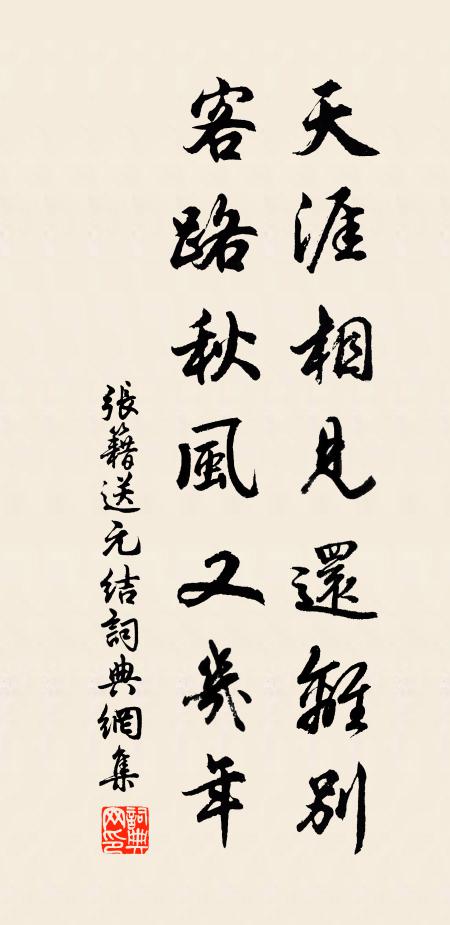 天涯相見還離別
客路秋風又幾年
張籍送元結詞典網集
詞典网印